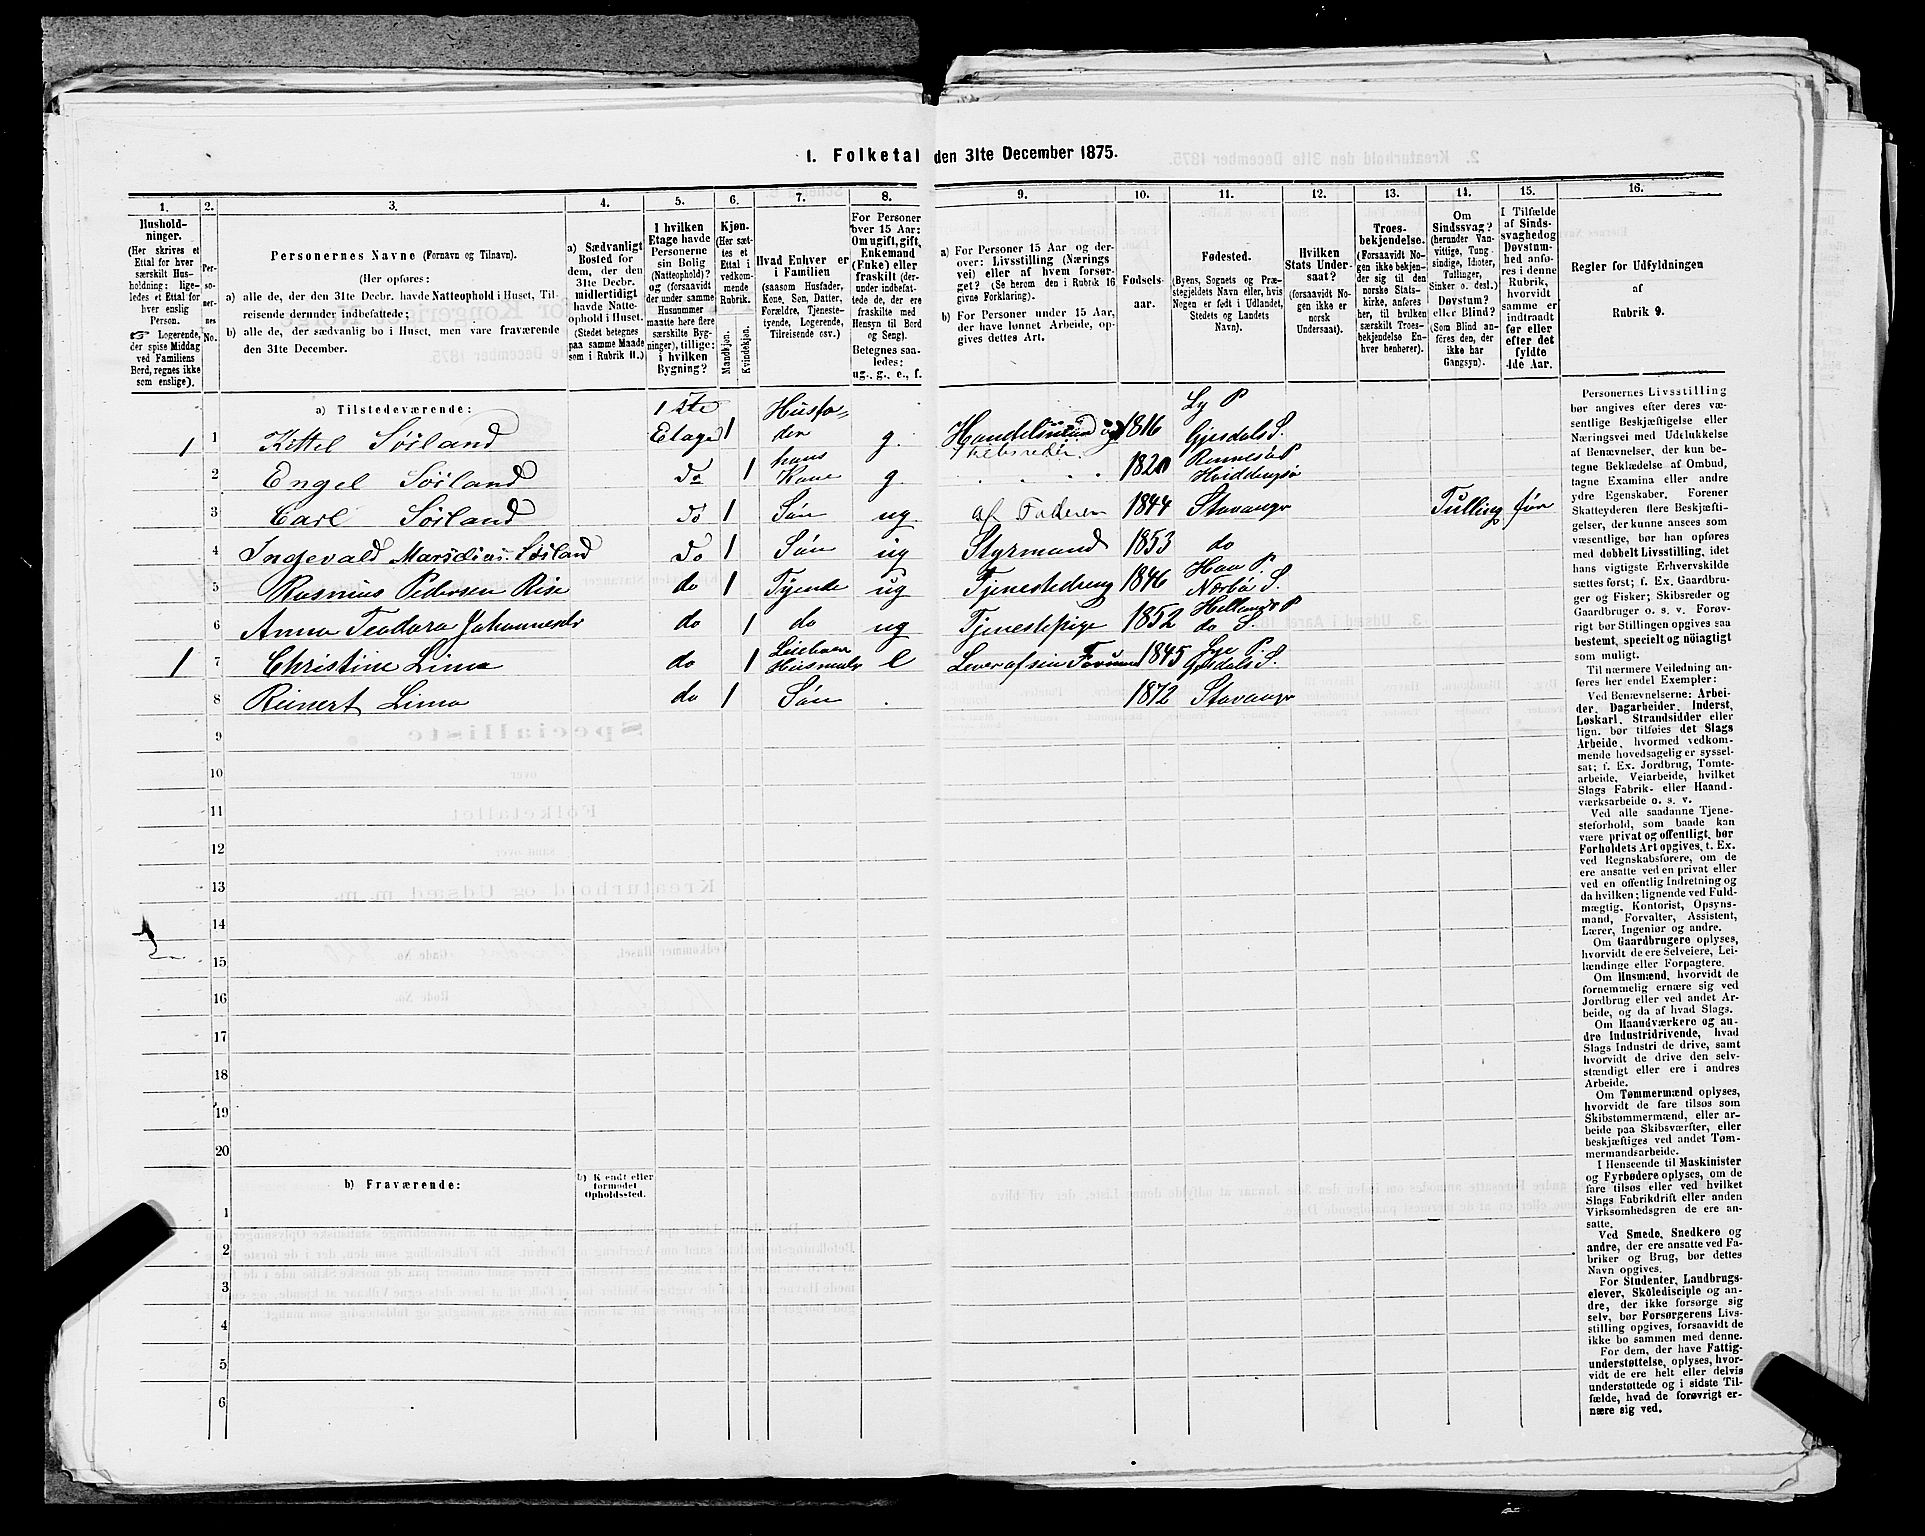 1. Folketal den 31te December 1875.
1. 2. 3. 4. 5. 6. 7. 8. 9. 10. 11. 12. 13. 14. 15. 16.
Hushold-
ninger.
(Her skrives et
Ettal for hver
særskilt Hus-
holdning; lige-
ledes et Ettal for
hver enslig
Person.
☞ Logerende,
der spise Middag
ved Familiens
Bord, regnes ikke
som enslige).
Per-
so-
ner-
nes
No.
Personernes Navne (Fornavn og Tilnavn).
(Her opføres:
a) alle de, der den 31te Decbr. havde Natteophold i Huset, Til-
reisende derunder indbefattede;
b) alle de, der sædvanlig bo i Huset, men vare fraværende
den 31te December.
a) Sædvanligt
Bosted for
dem, der den
31te Decbr.
midlertidigt
havde Natte-
ophold i Huset.
(Stedet betegnes
paa samme Maade
som i Rubrik 11.)
I hvilken
Etage havde
Personerne
sin Bolig
(Natteophold)?
og (forsaavidt
der under samme
Husnummer
maatte høre flere
særskilte Byg-
ninger), tillige:
i hvilken
Bygning?
Kjøn.
(Her sæt-
tes et
Ettal i
vedkom-
mende
Rubrik.
Mandkjøn.
Kvindekjøn.
Hvad Enhver er
i Familien
(saasom Husfader,
Kone, Søn, Datter,
Forældre, Tjeneste-
tyende, Logerende,
Tilreisende osv.)
For Personer
over 15 Aar:
Om ugift, gift,
Enkemand
(Enke) eller
fraskilt (der-
under indbefat-
tede de, der ere
fraskilte med
Hensyn til Bord
og Seng).
Betegnes saa-
ledes:
ug., g., e., f.
a) For Personer 15 Aar og der-
over: Livsstilling (Nærings
vei) eller af hvem forsør-
get? (Se herom den i Rubrik 16
givne Forklaring).
b) For Personer under 15 Aar,
der have lønnet Arbeide, op-
gives dettes Art.
Fødsels-
aar.
Fødested.
(Byens, Sognets og Præ-
stegjeldets Navn eller, hvis
Nogen er født i Udlandet,
Stedets og Landets
Navn).
Hvilken
Stats Under-
saat?
(forsaavidt No-
gen ikke er
norsk
Undersaat).
Troes-
bekjendelse.
(Forsaavidt No-
gen ikke bekjen-
der sig til den
norske Stats-
kirke, anføres
her, til hvilket
særskilt Troes-
bekjendelse En-
hver henhører).
Om
Sindssvag?
(herunder Van-
vittige, Tung-
sindige, Idioter,
Tullinger,
Sinker o. desl.)
Døvstum?
eller Blind?
(Som Blind an-
føres den, der
ikke har
Gangsyn).
I Tilfælde
af Sinds-
svaghed og
Døvstum-
hed anfø-
res i denne
Rubrik,
hvorvidt
samme er
indtraadt
før eller
efter det
fyldte
4de Aar.
Regler for Udfyldningen
af
Rubrik 9.
a) Tilstedeværende:
1 1 Kittel Søiland 1ste Etage 1 Husfader g. Handelsmand og Skibsreder. 1816 Ly P Gjesdal S.
2 Engel Søiland Do 1 hans Kone g. 1820 Rennesø P Hviddingsø
3 Carl Søiland Do 1 Søn ug af Faderen 1844 Stavanger Tulling før
4 Ingevald Marsdius Søiland Do 1 Søn ug Styrmand 1853 do
5 Rasmus Pedersen Rise do 1 Tyende ug Tjenestedreng 1846 Haa P. Nærbø S.
6 Anna Teodora Johannesdr do 1 do ug Tjenestepige 1852 Hetlands P do S.
1 7 Christine Lima do 1 e Lever af sin Formue 1845 Lye P. Gjesdals S.
8 Reinert Lima do 1 Søn 1872 Stavanger
9
10
11
12
13
14
15
16
17
18
19
20
b) Fraværende:
b) Kjendt eller
formodet
Opholdssted.
1
2
3
4
5
6
Personernes Livsstilling
bør angives efter deres væ-
sentlige Beskjæftigelse eller
Næringsvei med Udelukkelse
af Benævnelser, der kun be-
tegne Beklædelse af Ombud,
tagne Examina eller andre
ydre Egenskaber. Forener
Skatteyderen flere Beskjæfti-
gelser, der kunne ansees som
væsentlige, bør han opføres
med dobbelt Livsstilling, idet
hans vigtigste Erhvervskilde
sættes først; f. Ex. Gaardbru-
ger og Fisker; Skibsreder og
Gaardbruger o. s. v. Forøv-
rigt bør Stillingen opgives saa
bestemt, specielt og nöiagtigt
som muligt.
Til nærmere Veiledning an-
føres her endel Exempler:
Ved Benævnelserne: Arbei-
der, Dagarbeider, Inderst,
Løskarl, Strandsidder eller
lign. bør tilføies det Slags
Arbeide, hvormed vedkom-
mende hovedsagelig er syssel-
sat; f. Ex. Jordbrug, Tomte-
arbeide, Veiarbeide, hvilket
Slags Fabrik- eller Haand-
værksarbeide o. s. v.
Ved alle saadanne Tjene-
steforhold, som baade kan
være privat og offentligt, bør
Forholdets Art opgives, t. Ex.
ved Regnskabsførere, om de
ere ansatte ved en privat eller
ved en offentlig Indretning og
da hvilken; lignende ved Fuld-
mægtig, Kontorist, Opsyns-
mand, Forvalter, Assistent,
Lærer, Ingeniør og andre.
Om Gaardbrugere oplyses,
hvorvidt de ere Selveiere, Lei-
lændinge eller Forpagtere.
Om Husmænd, hvorvidt de
fornemmelig ernære sig ved
Jordbrug eller ved andet Ar-
beide, og da af hvad Slags.
Om Haandværkere og an-
dre Industridrivende, hvad
Slags Industri de drive, samt
hvorvidt de drive den selv-
stændigt eller ere i andres
Arbeide.
Om Tømmermænd oplyses,
hvorvidt de fare tilsøs som
Skibstømmermænd, eller ar-
beide paa Skibsværfter, eller
beskjæftiges ved andet Tøm-
mermandsarbeide.
I Henseende til Maskinister
og Fyrbødere oplyses, om de
fare tilsøs eller ved hvilket
Slags Fabrikdrift eller anden
Virksomhedsgren de ere an-
satte.
Ved Smede, Snedkere og
andre, der ere ansatte ved Fa-
briker og Brug, bør dettes
Navn opgives.
For Studenter, Landbrugs-
elever, Skoledisciple og an-
dre, der ikke forsørge sig
selv, bør Forsørgerens Livs-
stilling opgives, forsaavidt de
ikke bo sammen med denne.
For dem, der have Fattig-
understøttelse, oplyses, hvor-
vidt de ere helt eller delvis
understøttede og i sidste Til-
fælde, hvad de forøvrigt er-
nære sig ved.